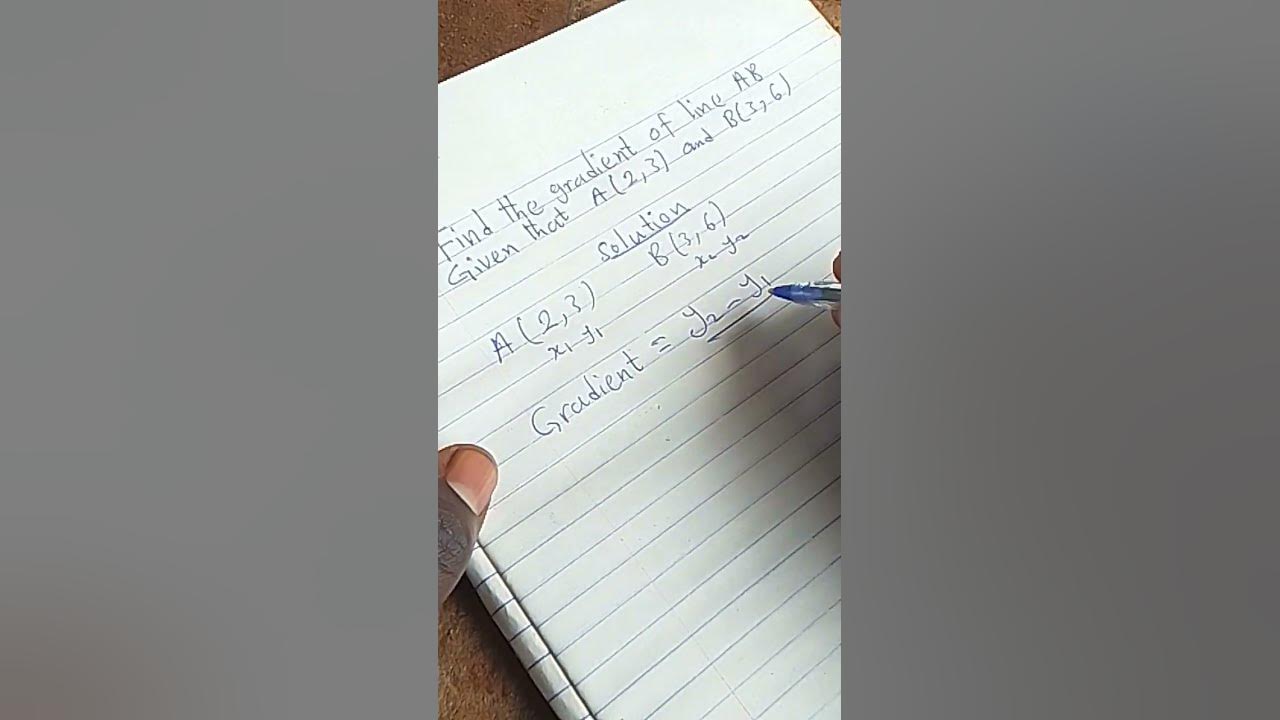 Find the gradient of line AB
Given that A(2,3) and B(3,6)
Solution
A(2,3) B(3,6)
x₁ y₁ x₂ y₂
Gradient = y₂ - y₁